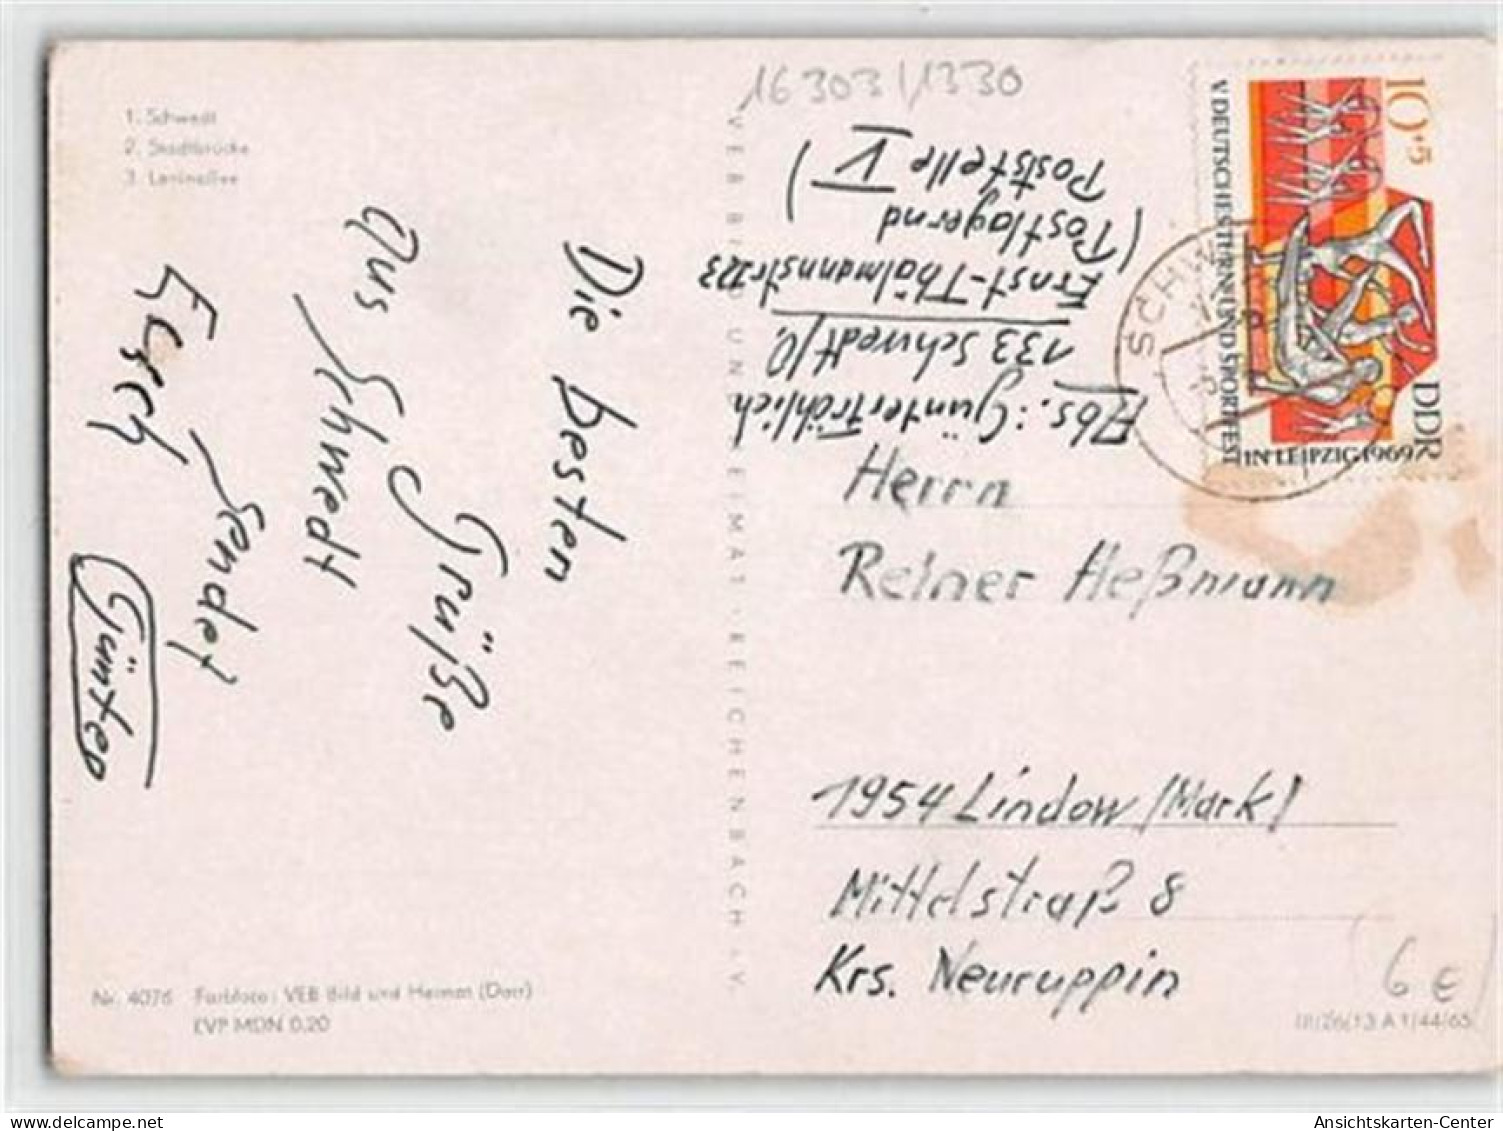 16303/1330
1. Schwedt
2. Stadtbrücke
3. Leninallee
Die besten
Grüße
aus Schwedt
sendet
Euch
Günter
Nr. 4076 Farbfoto: VEB Bild und Heimat (Darr)
EVP MDN 0.20
VEB BILD UND HEIMAT REICHENBACH I. V.
Abs.: Günter Fröhlich
133 Schwedt/O.
Ernst-Thälmannstr. 223
(Postlagernd
Poststelle V)
10+5
DDR
V. DEUTSCHES TURN- UND SPORTFEST
IN LEIPZIG 1969
SCHW
Herrn
Reiner Heßmann
1954 Lindow (Mark)
Mittelstraß 8
Krs. Neuruppin
6 €
III/26/13 A 1/44/65
picclick.net
Ansichtskarten-Center